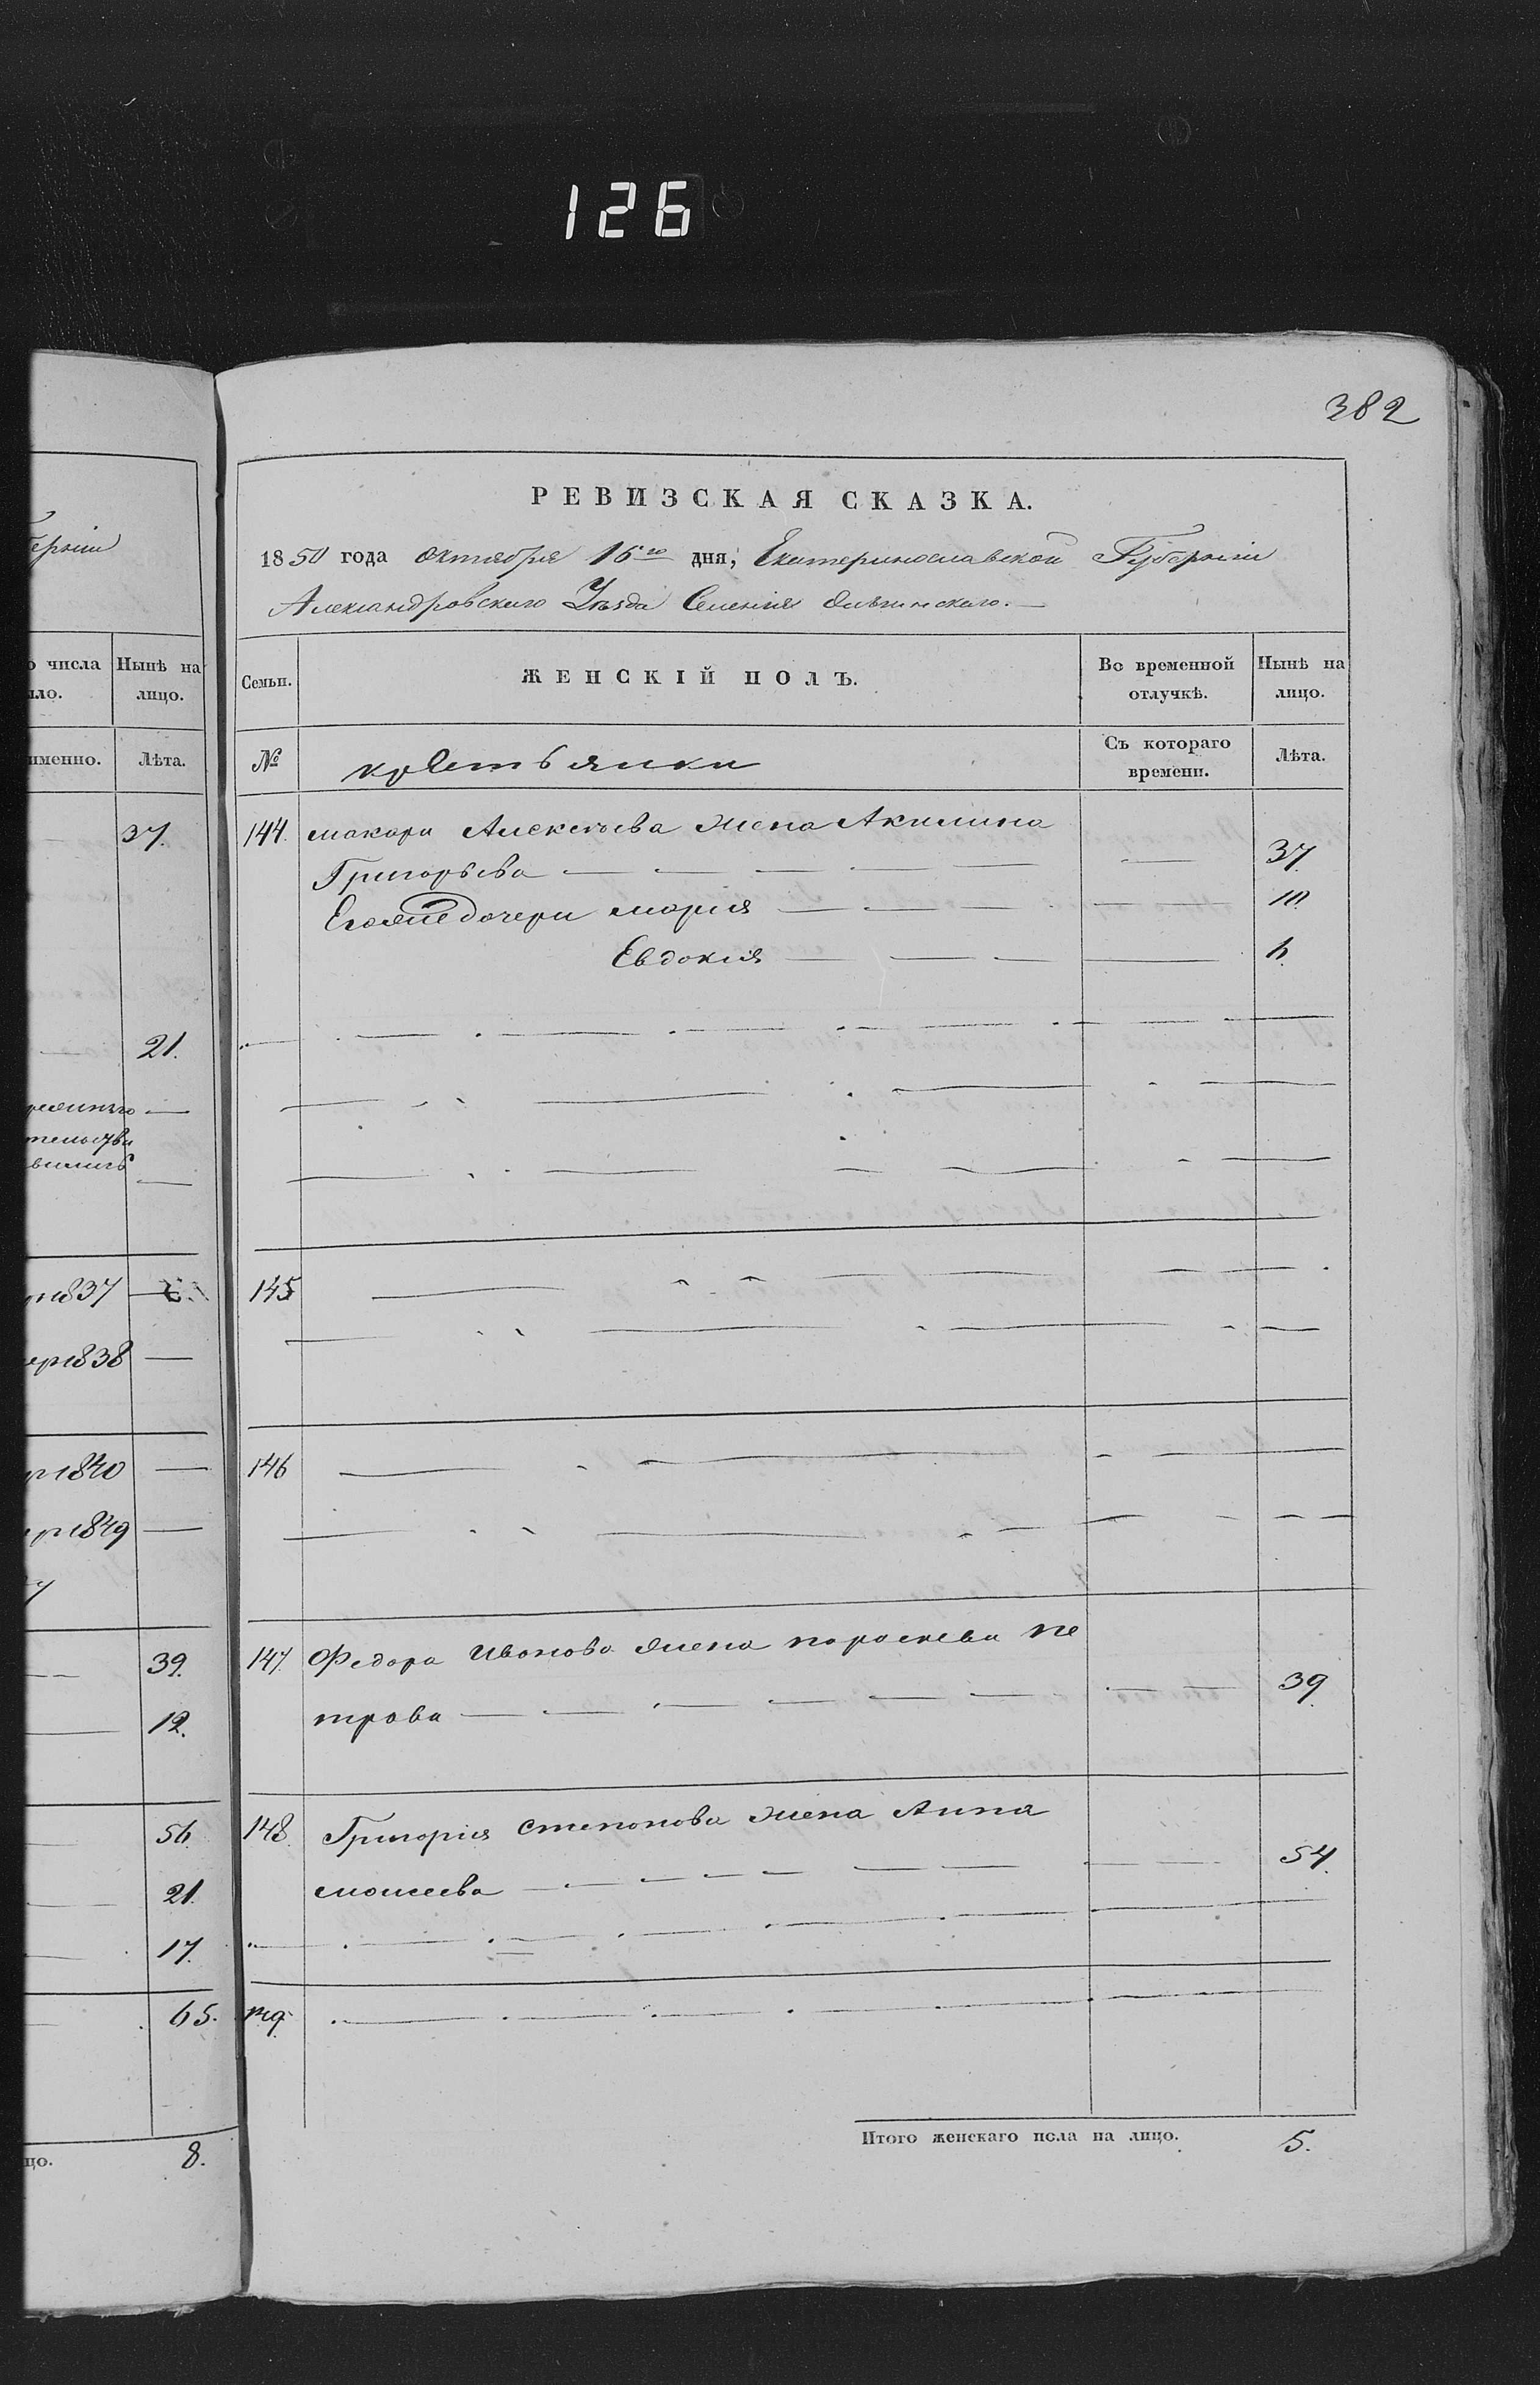 126
382
РЕВИЗСКАЯ СКАЗКА.
1850 года Октября 16го дня, Екатеринославской Губернии
Александровского Уезда Селения
Семьи.
ЖЕНСКІЙ ПОЛЪ.
Во временной отлучкѣ.
Нынѣ на лицо.
№
крестьянки
Съ котораго времени.
Лѣта.
144. макара Алексеева жена Акилина
Григорьева 37.
Егоже дочери мария 10.
Евдокия 6.
145
146
147. Федора Иванова жена параскева пе
трова 39.
148. Григория степанова жена Анна
моисеева 54.
149.
Итого женскаго пола на лицо. 5.
берніи
о числа
ло.
Нынѣ на
лицо.
именно.
Лѣта.
37.
21.
1837
1838
1840
1849
39.
12.
56.
21.
17.
65.
цо. 8.